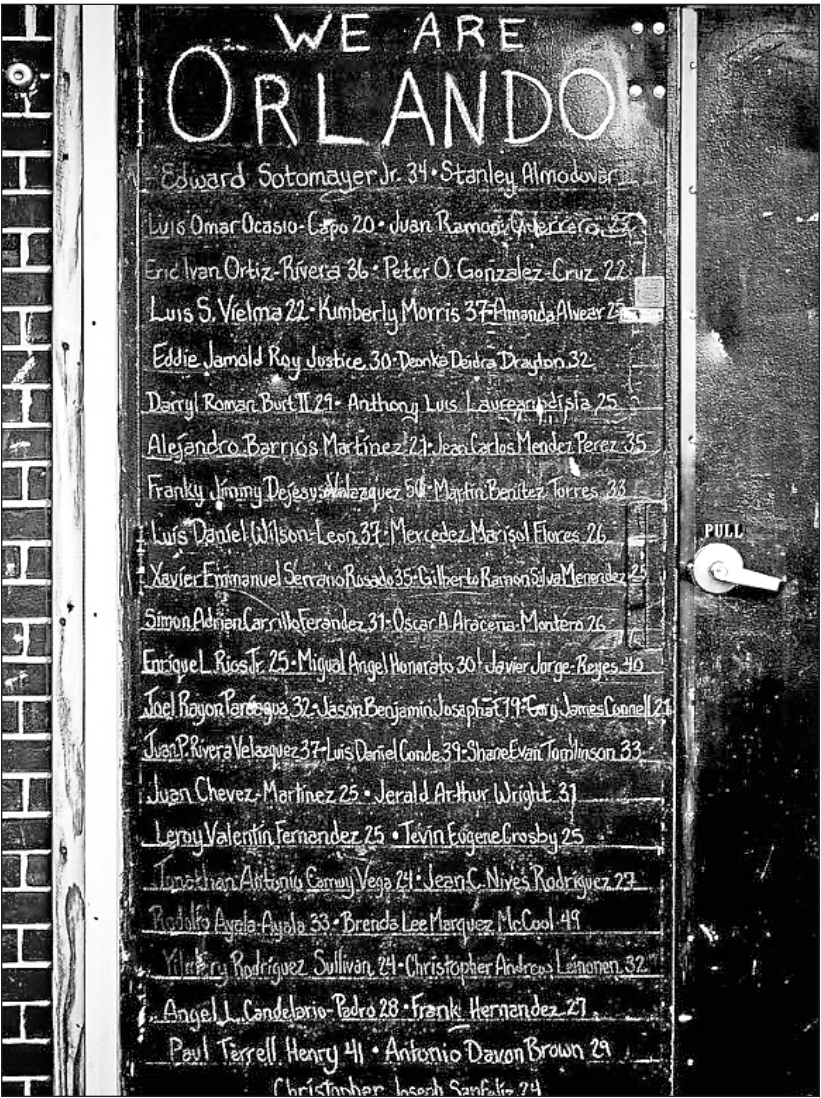 WE ARE
ORLANDO
Edward Sotomayer Jr. 34 • Stanley Almodovar
Luis Omar Ocasio-Capo 20 • Juan Ramon Guerrero 22
Eric Ivan Ortiz-Rivera 36 • Peter O. Gonzalez-Cruz 22
Luis S. Vielma 22 • Kimberly Morris 37 • Amanda Alvear 25
Eddie Jamold Roy Justice 30 • Deonka Deidra Drayton 32
Darryl Roman Burt II 29 • Anthony Luis Laureanodisla 25
Alejandro Barrios Martinez 21 • Jean Carlos Mendez Perez 35
Franky Jimmy Dejesus Velazquez 50 • Martin Benitez Torres 33
Luis Daniel Wilson-Leon 37 • Mercedez Marisol Flores 26
Xavier Emmanuel Serrano Rosado 35 • Gilberto Ramon Silva Menendez 25
Simon Adrian Carrillo Ferandez 31 • Oscar A Aracena-Montero 26
Enrique L. Rios Jr. 25 • Migual Angel Honorato 30 • Javier Jorge-Reyes 40
PULL
Joel Rayon Paniagua 32 • Jason Benjamin Josaphat 19 • Cory James Connell 21
Juan P. Rivera Velazquez 37 • Luis Daniel Conde 39 • Shane Evan Tomlinson 33
Juan Chevez-Martinez 25 • Jerald Arthur Wright 31
Leroy Valentin Fernandez 25 • Tevin Eugene Crosby 25
Jonathan Antonio Camuy Vega 24 • Jean C. Nives Rodriguez 27
Rodolfo Ayala-Ayala 33 • Brenda Lee Marquez McCool 49
Yilmary Rodriguez Sullivan 24 • Christopher Andrew Leinonen 32
Angel L. Candelario-Padro 28 • Frank Hernandez 27
Paul Terrell Henry 41 • Antonio Davon Brown 29
Christopher Joseph Sanfeliz 24